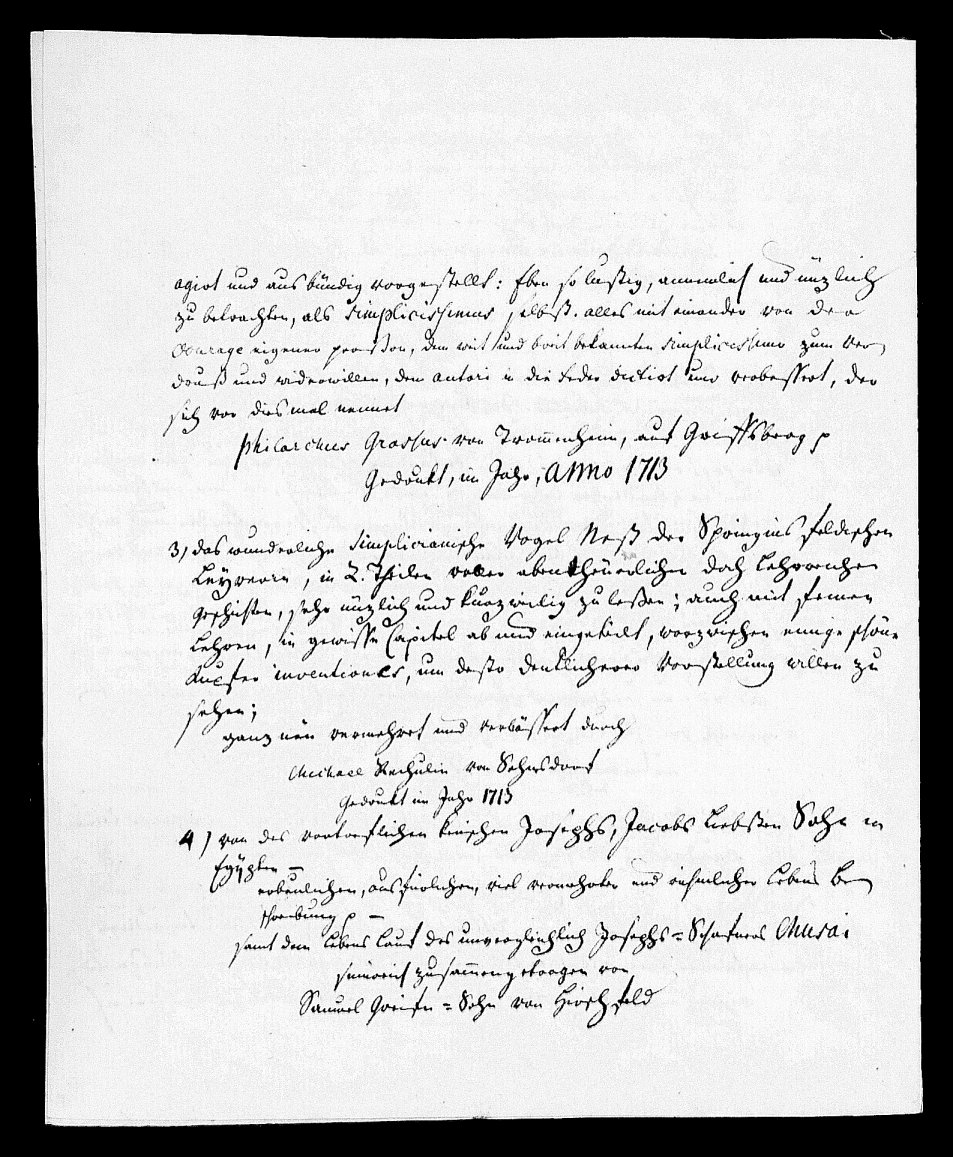 agirt und ausbündig vorgestellt: Eben so lustig, annemlich und nüzlich
zu betrachten, als Simplicissimus selbst. alles mit einander von der
Courage eigener persohn, dem weit und breit bekannten Simplicissimo zum Ver
druß und widerwillen, dem autori in die Feder dictirt und verbessert, der
sich vor dies mal nennet
Philarchus Grossus von Trommenheim, auf Griffsberg p
Gedrukt, im Jahr, Anno 1713
3) das wunderliche Simplicianische Vogel Nest der Springins feldischen
Leyrerin, in 2. Theilen voller abentheuerlicher doch Lehrreicher
Geschichten, sehr nüzlich und kurzweilig zu leßen; auch mit feinen
Lehren, in gewisse Capitel ab und eingetheilt, worzwischen einige schöne
Kupfer inventiones, um desto deutlicherer Vorstellung willen zu
sehen;
ganz neu vermehret und verbässert durch
Michael Rechulin von Sehmsdorf
Gedrukt im Jahr 1713
4) von des vortreflichen keuschen Josephs, Jacobs Liebsten Sohn in
Egÿpten -
erbaulichen, ausfürlichen, viel vermehrter und rühmlicher Lebens Be
schreibung p -
samt dem Lebens Lauf des unvergleichlich Josephs = Schafners Musai
sinnreich zusammengetragen von
Samuel Greifn = Sohn von Hirschfeld